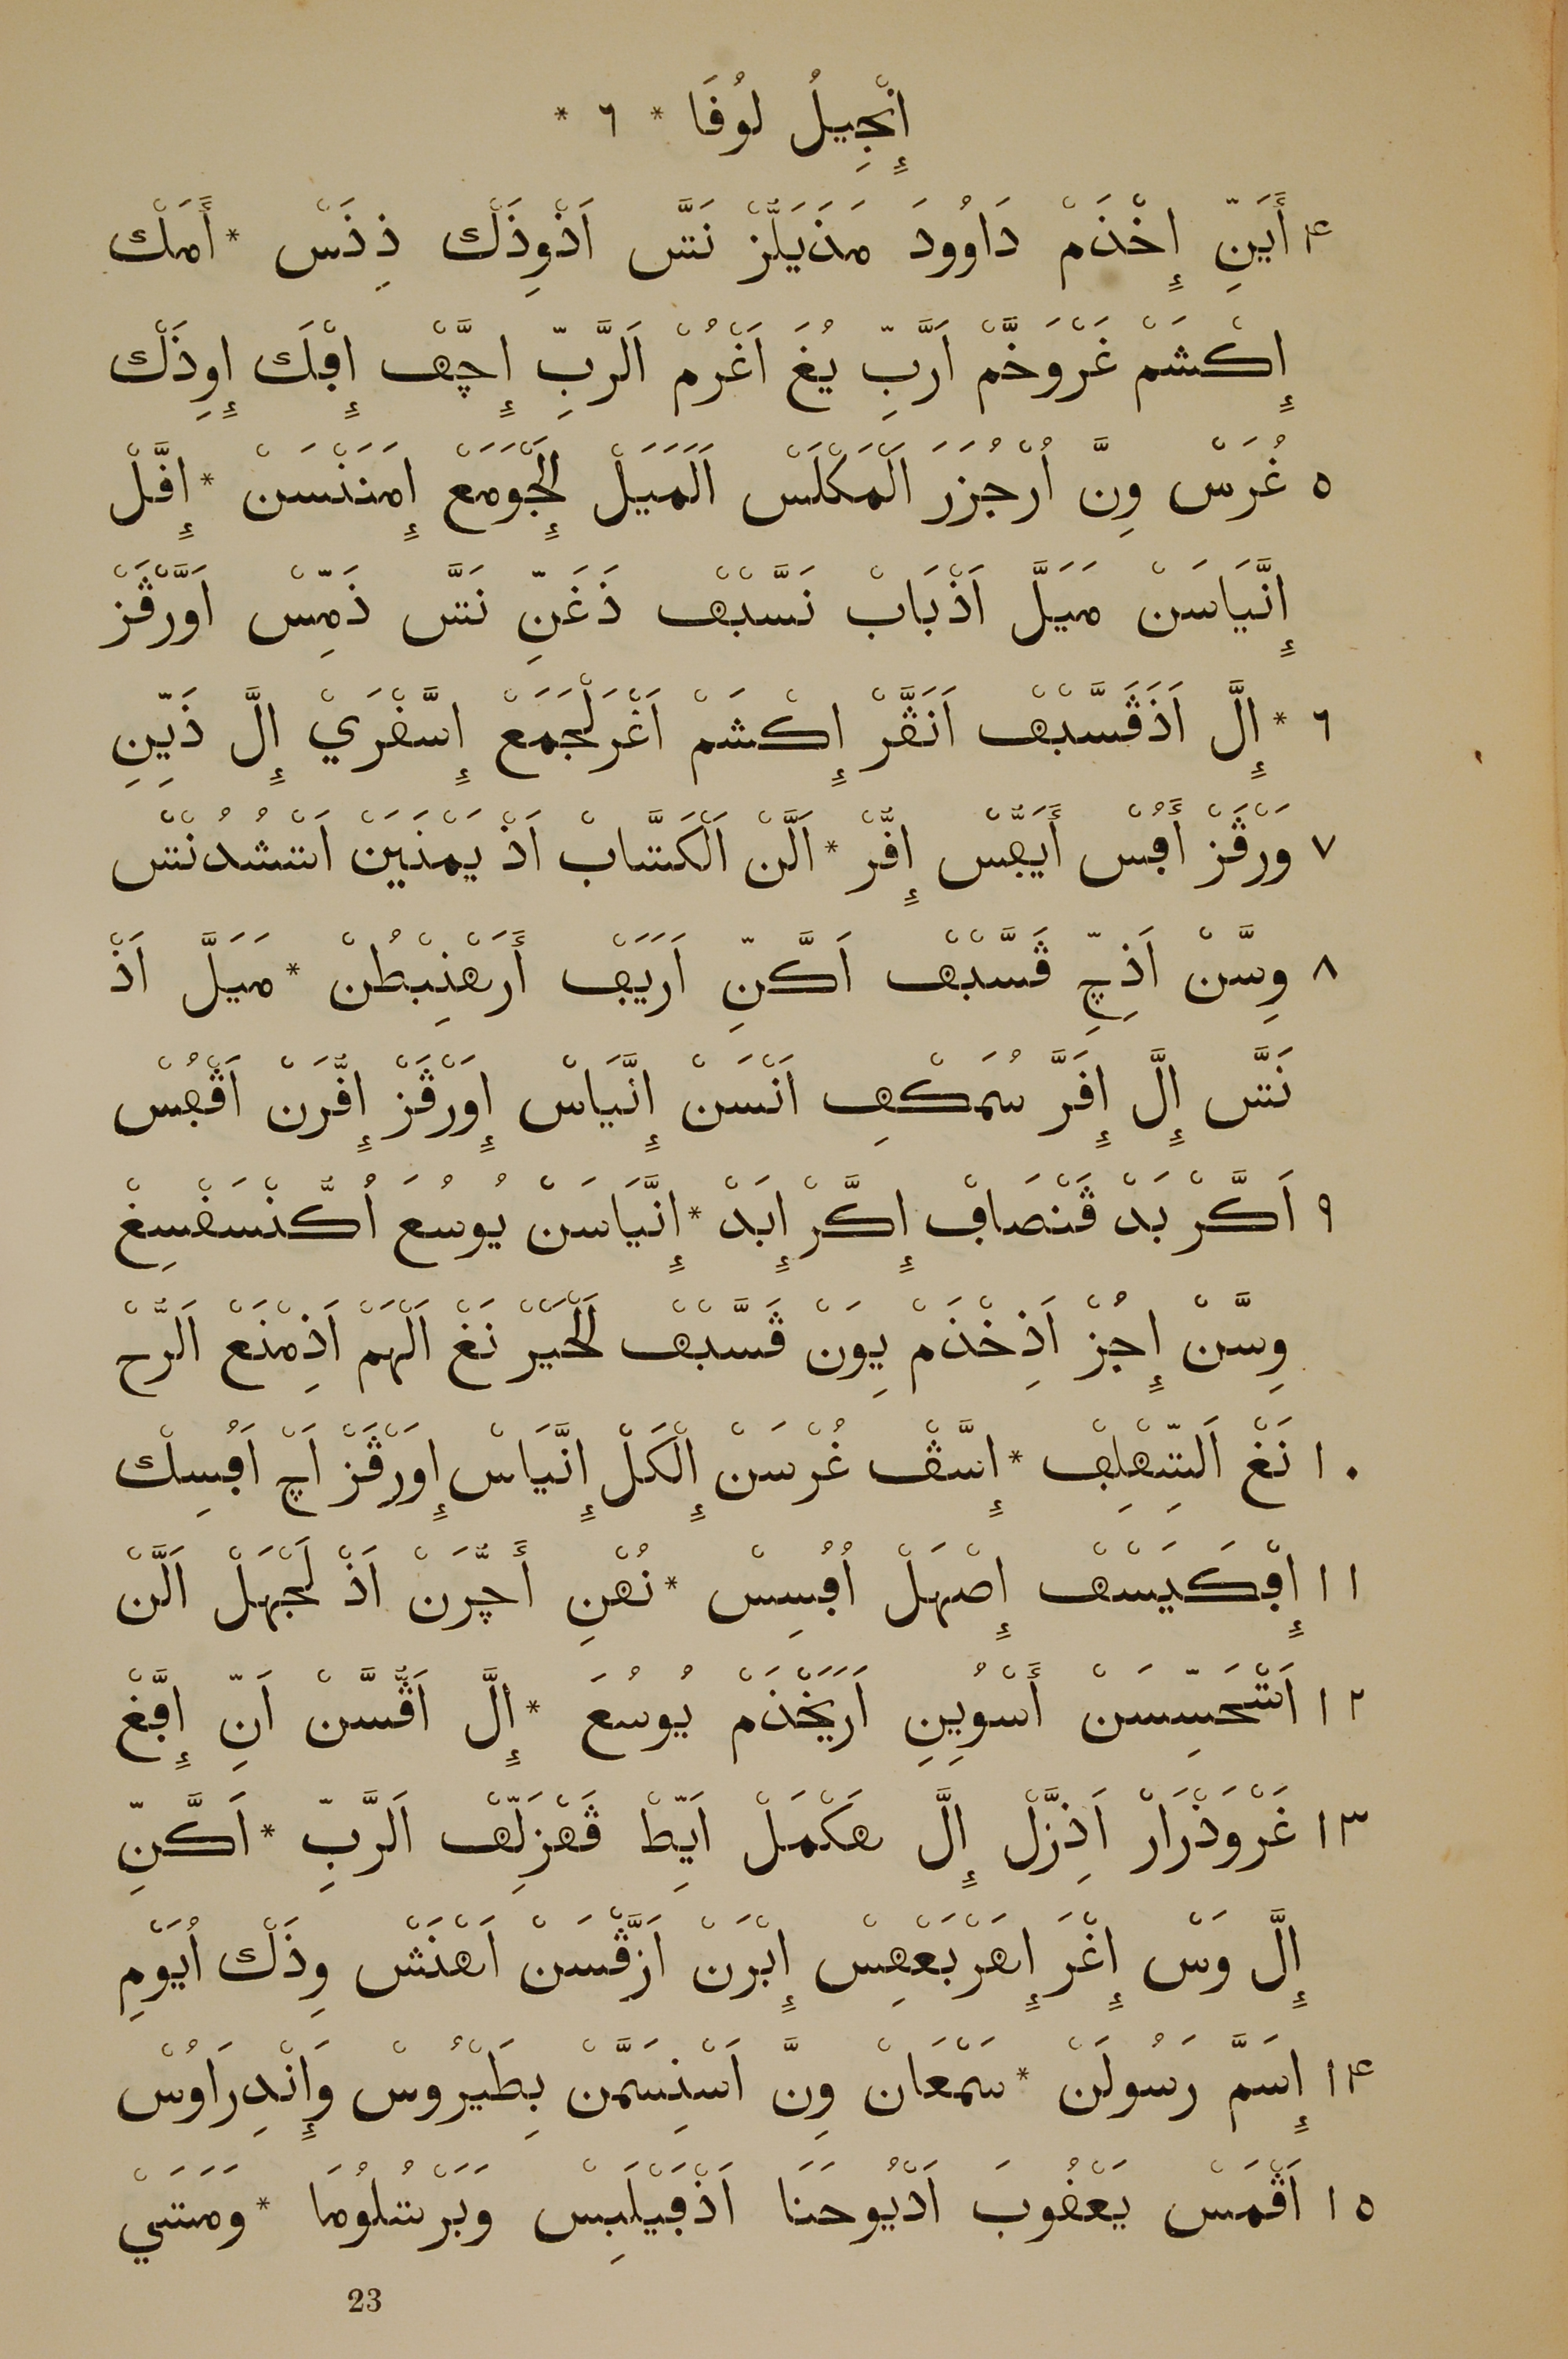 إِنْجِيلُ لُوفَا * ٦ *
۴ أَيَنِّ إِخْذَمْ دَاوُودَ مَذَيَلُّزْ نَتَّس اَذْوِذَلْك ذِذَسْ * أَمَك
إِكْشَمْ غَرْوَخَّمْ اَرَّبِّ يُغَ اَغْرُمْ اَلرَّبِّ إِچَّڢ إِڢْكَ إِوِذَلْك
٥ غُرَسْ وِنَّ اُرْجُزَرَ اَلْمَكْلَسْ اَلَمَيَلْ لِجْوَمَعْ إِمَنَنْسَنْ * إِڢَّلْ
إِنَّيَاسَنْ مَيَلَّ اَذْبَابْ نَسَّبْڢْ ذَغَنِّ نَتَّس ذَمِّسْ اَوَرْڤَزْ
٦ * إِلَّ اَذَڤَسَّبْڢْ اَنَڤَّرْ إِكْشَمْ اَغْرَلْجَمَعْ إِسَّفْرَيْ إِلَّ ذَيِّنِ
٧ وَرْڤَزْ أَڢُسْ أَيَڢُّسْ إِڢُّرْ * اَلَّنْ اَلْكَتَّابْ اَذْ يَمْنَيَنْ اَتْشُدُنْتْس
٨ وِسَّنْ اَذِچِّ ڤَسَّبْڢْ اَكَّنِّ اَرَيَڢْ أَرَهْنِبْطُنْ * مَيَلَّ اَذْ
نَتَّس إِلَّ إِڢَرَّ سُمَكْڢِ اَنْسَنْ إِنَّيَاسْ إِوَرْڤَزْ إِڢُّرَنْ اَڤْڢُسْ
٩ اَكَّرْ بَدْ ڤَنْصَاڢْ إِكَّرْ إِبَدْ * إِنَّيَاسَنْ يُوسُعَ اُكُّنْسَڢْسِغْ
وِسَّنْ إِجُزْ اَذِخْذَمْ يِوَنْ ڤَسَّبْڢْ لَخَيْرْ نَغْ اَلْهَمْ اَذِمْنَعْ اَلرُّحْ
١٠ نَغْ اَلتِّهْلِڢْ * إِسَّڤْ غُرْسَنْ إِلْكَلْ إِنَّيَاسْ إِوَرْڤَزْ اَچْ اَڢُسِكْ
١١ إِڢْكَيَسْڢْ إِصْهَلْ اُڢُسِسْ * نُهْنِ أَچُّرَنْ اَذْ لَجْهَلْ اَلَّنْ
١٢ اَتْحَسِّسَنْ أَسْوُيِنِ اَرَيَخْذَمْ يُوسُعَ * إِلَّ اَڤُّسَّنْ اَنِّ إِڢَّغْ
١٣ غَرْوَذْرَارْ اَذِزَّلْ إِلَّ هَكْمَلْ اَيِّطْ ڤَهْزَلِّڢْ اَلرَّبِّ * اَكَّنِّ
إِلَّ وَسْ إِغْرَ إِهَرْبَعْهِسْ إِبْرَنْ اَزَّڤْسَنْ اَهْنَشْ وِذَلْك اُيَوْمِ
١۴ إِسَمَّ رَسُولَنْ * سَمْعَانْ وِنَّ اَسْنِسَمَّنْ بِطَيْرُوسْ وَإِنْدِرَاوُسْ
١٥ اَڤْمَسْ يَعْڢُوبَ اَذْيُوحَنَا اَذْڢَيْلَبِسْ وَبَرْتُلُومَا * وَمَتَيْ
23